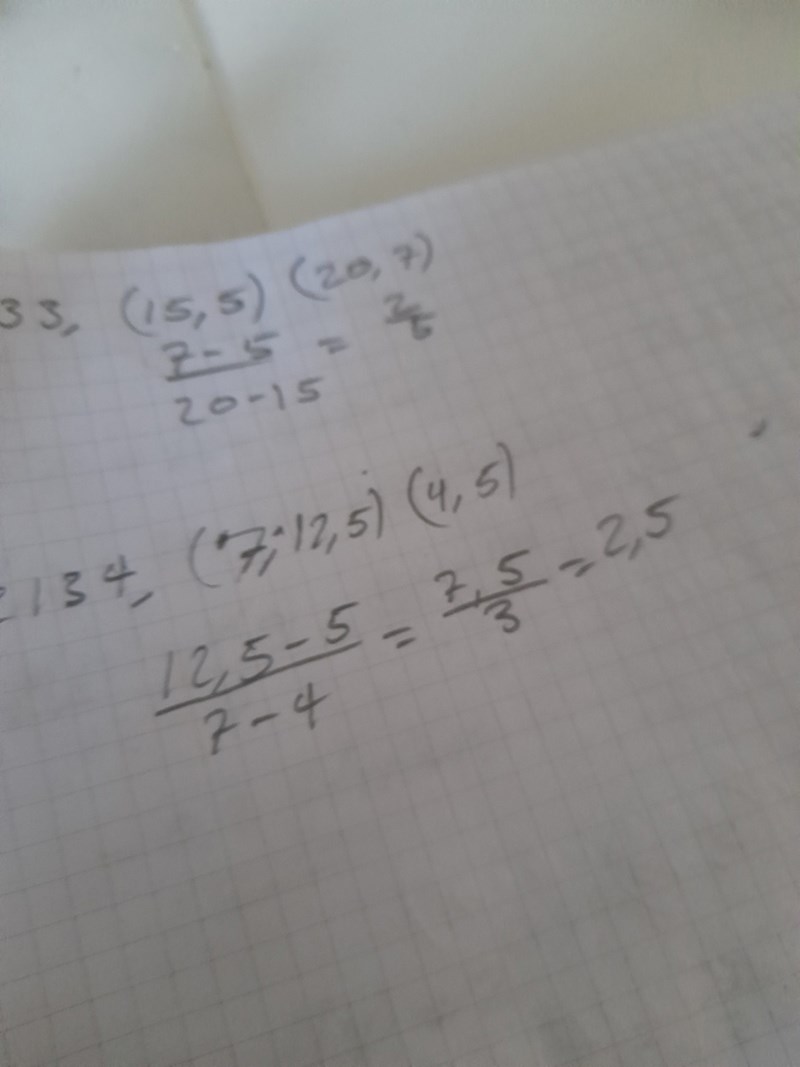 33, (15,5) (20,7)
7-5 = 2
20-15 5
2134, (7;12,5) (4,5)
12,5-5 = 7,5 = 2,5
7-4 3